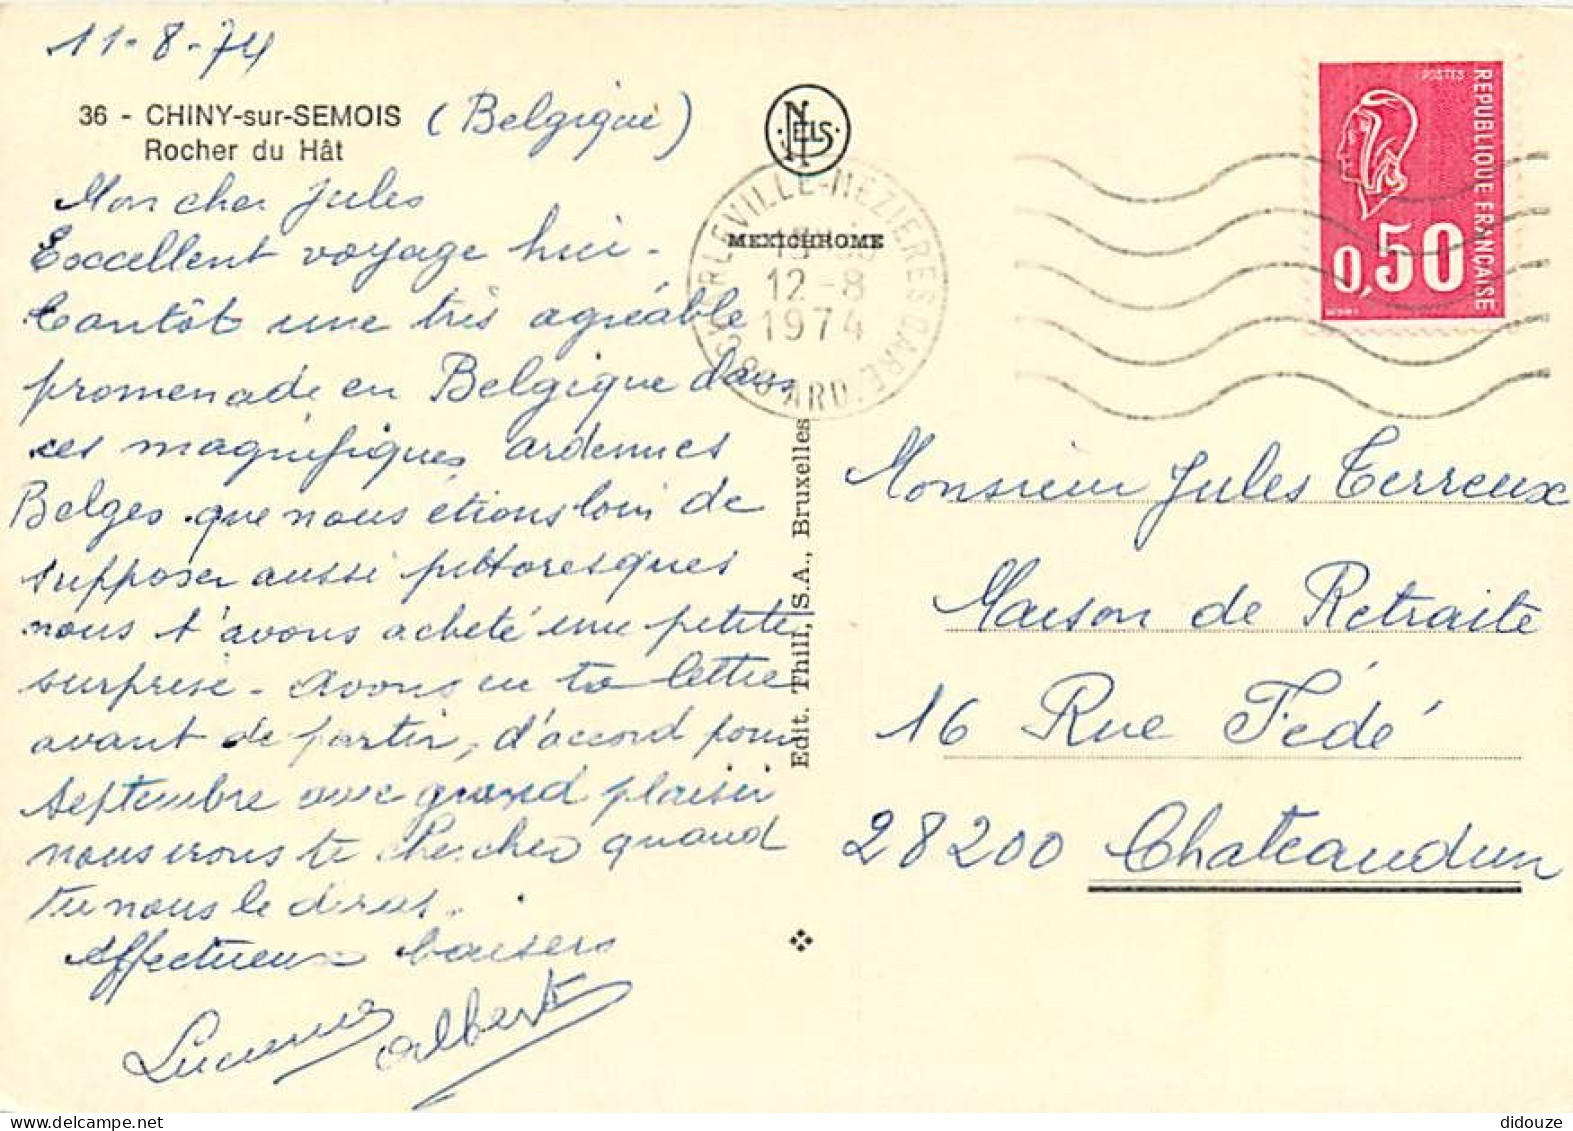 11-8-74
36 - CHINY-sur-SEMOIS (Belgique)
Rocher du Hât
Mon cher Jules
Excellent voyage hier -
tantôt une très agréable
promenade en Belgique dans
ces magnifiques ardennes
Belges que nous étions loin de
supposer aussi pittoresques
nous t'avons acheté une petite
surprise - avons eu ta lettre
avant de partir, d'accord pour
septembre avec grand plaisir
nous irons te chercher quand
tu nous le diras.
Affectueux baisers
Lucienne Albert
NELS
MEXICHROME
CHARLEVILLE-MEZIERES GARE
12-8
1974
08 ARD.
Edit. Thill, S.A., Bruxelles
POSTES
REPUBLIQUE FRANÇAISE
0,50
Monsieur Jules Terreux
Maison de Retraite
16 Rue Fédé
28200 Chateaudun
didouze